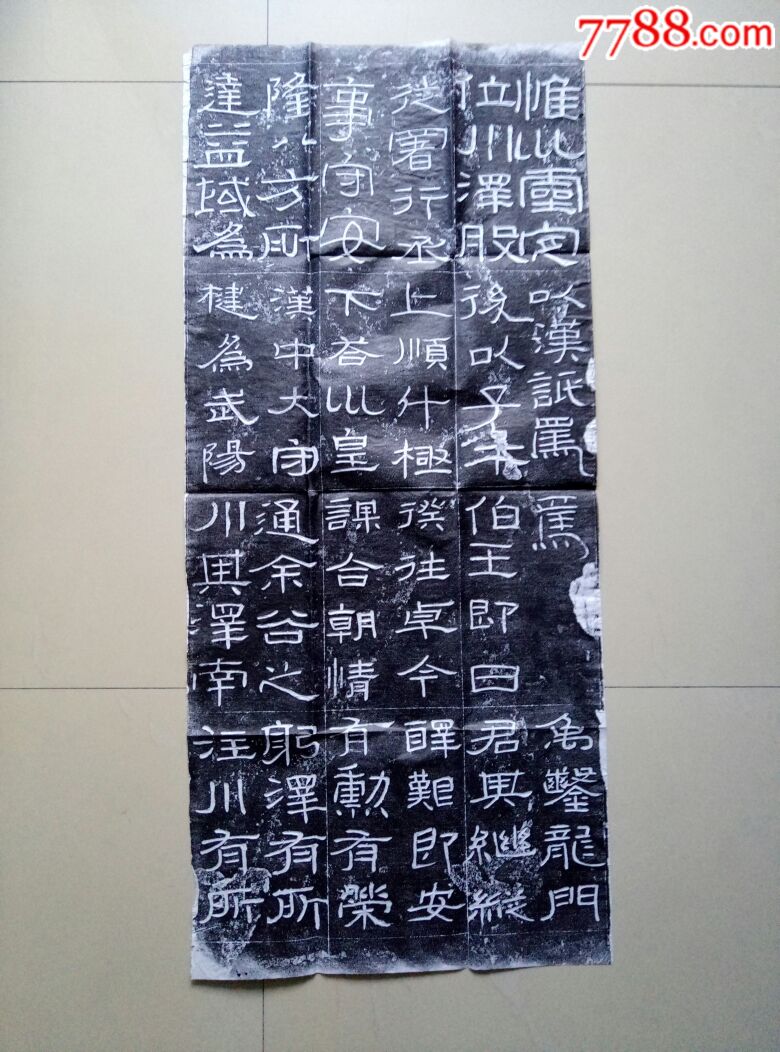 惟巛靈定吠漢詆焉焉禹鑿龍門
位川澤股後以子午伯王即曰君其繼縱
從署行丞上順斗極往卓今醳艱即安
事守安下荅巛皇課合朝情有勳有榮
隆八方所漢中大守通余谷之躬澤有所
達益域為楗為武陽川其澤南注川有所
7788.com